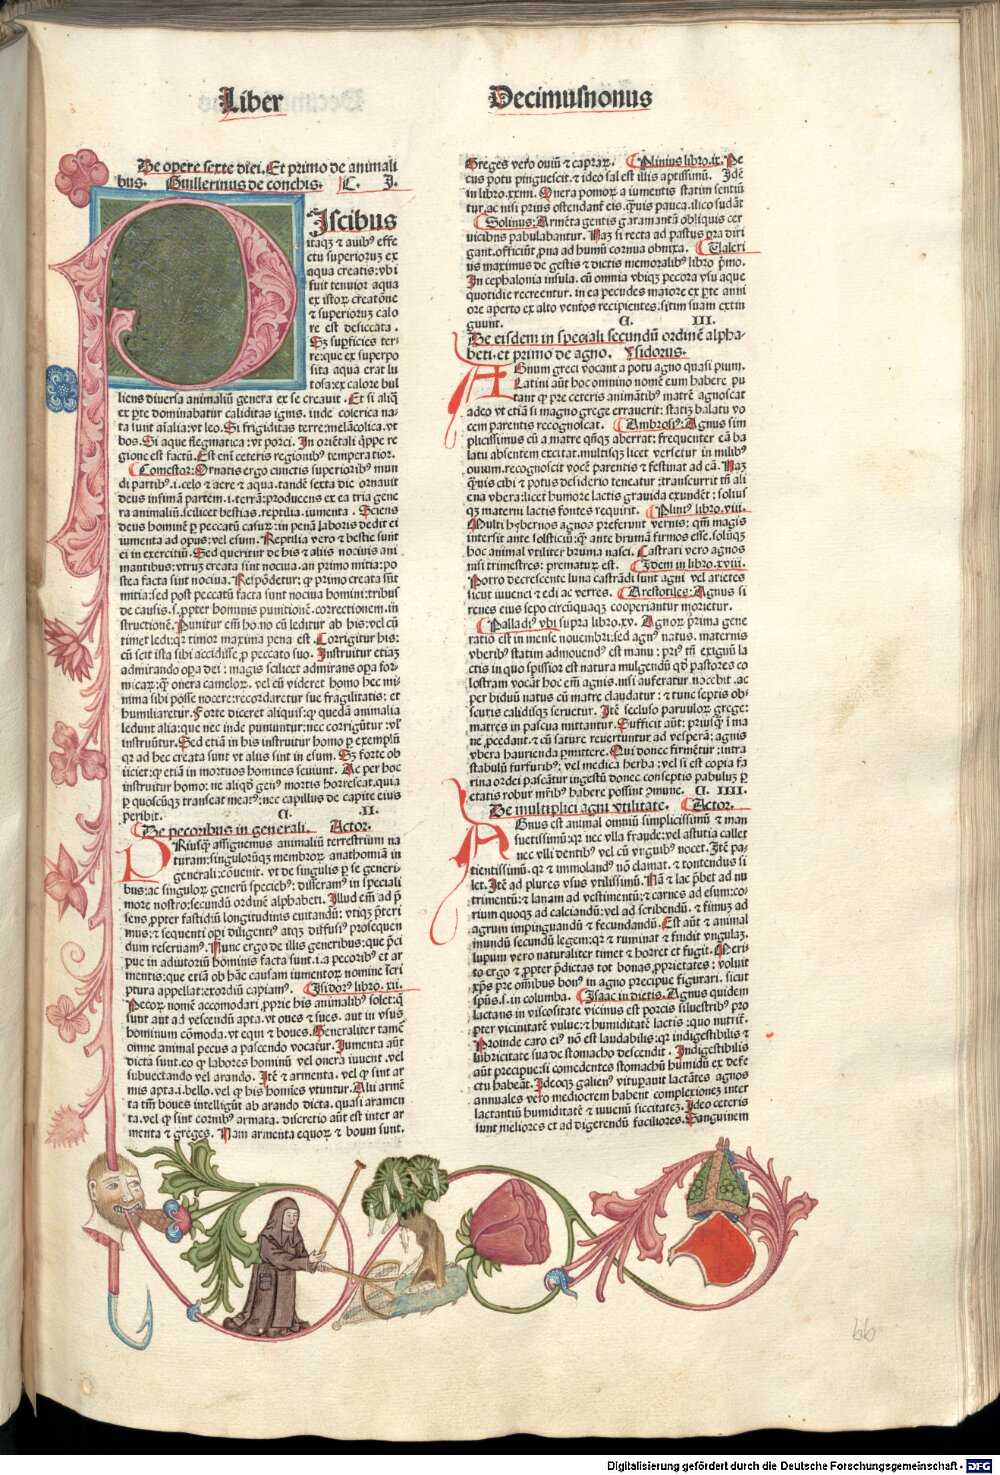 Liber
Decimusnonus
De opere sexte diei. Et primo de animali
bus. Guillerinus de conchis. C. I.
Iscibus
itaqʒ ⁊ auibꝰ effe
ctu superiorꝝ ex
aqua creatis: vbi
fuit tenuior aqua
ex istoꝝ creatōne
⁊ superiorꝝ calo
re est desiccata.
Sʒ suꝑficies ter-
re: que ex superpo
sita aqua erat lu
tosa: ex calore bul
liens diuersa animaliū genera ex se creauit. Et si aliq̄
ex ꝑte dominabatur caliditas ignis. inde colerica na-
ta sunt aīalia: vt leo. Si frigiditas terre: melācolica. vt
bos. Si aque flegmatica: vt porci. In oriētali q̄ppe re
gione est factū. Est enī ceteris regionibꝰ temperatior.
Comestor: Ornatis ergo cunctis superioribꝰ mun
di partibꝰ. i. celo ⁊ aere ⁊ aqua. tandē sexta die ornauit
deus infimā partem. i. terrā: producens ex ea tria gene
ra animaliū. scilicet bestias. reptilia. iumenta. Sciens
deus hominē ꝑ peccatū casuꝝ: in penā laboris dedit ei
iumenta ad opus: vel esum. Reptilia vero ⁊ bestie sunt
ei in exercitiū. Sed queritur de his ⁊ aliis nociuis ani
mantibus: vtruʒ creata sint nociua. an primo mitia: po
stea facta sint nociua. Respōdetur: ꝙ primo creata sūt
mitia: sed post peccatū facta sunt nociua homini: tribus
de causis. s. ꝓpter hominis punitionē. correctionem. in
structionē. Punitur em̄ hō. nō cū leditur ab his: vel cū
timet ledi: qꝛ timor maxima pena est. Corrigitur his:
cū scit ista sibi accidisse ꝓ peccato suo. Instruitur etiaʒ
admirando oꝑa dei: magis scilicet admirans oꝑa for-
micaꝝ: q̄ꝫ onera cameloꝝ. vel cū videret homo hec mi-
nima sibi posse nocere: recordaretur sue fragilitatis: et
humiliaretur. Forte diceret aliquis: ꝙ quedā animalia
ledunt alia: que nec inde puniuntur: nec corrigūtur: vl̓
instruūtur. Sed etiā in his instruitur homo ꝑ exemplū
qꝛ ad hec creata sunt vt aliis sint in esum. Sʒ forte ob
iiciet: ꝙ etiā in mortuos homines seuiunt. Ac per hoc
instruitur homo: ne aliqd̓ genꝰ mortis horrescat. quia
ꝑ quoscūqʒ transeat meatꝰ: nec capillus de capite eius
peribit. C. .II.
De pecoribus in generali. Actor.
PRiusq̄ꝫ assignemus animaliū terrestrium na
turam: singuloruqʒ membroꝝ anathomiā in
generali: cōuenit. vt de singulis ꝑ se generi-
bus: ac singuloꝝ generū speciebꝰ: disseramꝰ in speciali
more nostro: secundū ordinē alphabeti. Illud em̄ ad p̄
sens ꝓpter fastidiū longitudinis euitandū: vtiqʒ p̄teri
mus: ⁊ sequenti oꝑi diligentiꝰ atqʒ diffusiꝰ prosequen
dum reseruamꝰ. Nunc ergo de illis generibus: que p̄ci
pue in adiutoriū hominis facta sunt. i. a pecoribꝰ et ar
mentis: que etiā ob hāc causam iumentoꝝ nomine scri
ptura appellat: exordiū capiamꝰ. Isidorꝰ libro. xii.
Pecoꝝ nomē accomodari ꝓprie his animalibꝰ solet: q̄
sunt aut ad vescendū apta. vt oues ⁊ sues. aut in vsus
hominum cōmoda. vt equi ⁊ boues. Generaliter tamē
omne animal pecus a pascendo vocatur. Iumenta aūt
dicta sunt. eo ꝙ labores hominū vel onera iuuent. vel
subuectando vel arando. Itē ⁊ armenta. vel ꝙ sint ar
mis apta. i. bello. vel ꝙ his homīes vtuntur. Alii armē
ta tm̄ boues intelligūt ab arando dicta. quasi aramen
ta. vel ꝙ sint cornibꝰ armata. discretio aūt est inter ar
menta ⁊ greges. Nam armenta equoꝝ ⁊ boum sunt.
Greges vero ouiū ⁊ capraꝝ. Plinius libro. ix. Pe
cus potu pinguescit. ⁊ ideo sal est illis aptissimū. Idē
in libro. xxiiii. Onera pomoꝝ a iumentis statim sentiū
tur. ac nisi prius ostendant eis. q̄uis pauca. ilico sudāt
Solinus: Armēta gentis garamantū obliquis cer
uicibꝰ pabulabantur. Naʒ si recta ad pastus ora diri
gant. officiūt ꝓna ad humū cornua obnixa. Ualeri
us maximus de gestis ⁊ dictis memoralibꝰ libro p̄mo.
In cephalonia insula. cū omnia vbiqʒ pecora ysu aque
quotidie recreentur. in ea pecudes maiore ex ꝑte anni
ore aperto ex alto ventos recipientes. sitim suam extin
guunt. C. III.
De eisdem in speciali secundū ordinē alpha-
beti. et primo de agno. Ysidorus.
AGnum greci vocant a potu agno quasi pium.
Latini aūt hoc omnino nomē eum habere pu
tant ꝙ pre ceteris animātibꝰ matrē agnoscat
adeo vt etiā si magno grege errauerit: statiʒ balatu vo
cem parentis recognoscat. Ambrosiꝰ: Agnus sim
plicissimus cū a matre qn̄qʒ aberrat: frequenter eā ba
latu absentem excitat. multisqʒ licet versetur in milibꝰ
ouium. recognoscit vocē parentis ⁊ festinat ad eā. Naʒ
q̄uis cibi ⁊ potus desiderio teneatur: transcurrit tn̄ ali
ena vbera: licet humore lactis grauida exundēt: solius
qʒ materni lactis fontes requirit. Pliniꝰ libro. viii.
Multi hybernos agnos preferunt vernis: qm̄ magis
intersit ante solsticiū: q̄ꝫ ante brumā firmos esse. solūqʒ
hoc animal vtiliter bruma nasci. Castrari vero agnos
nisi trimestres: prematuꝝ est. Idem in libro. xviii.
Porro decrescente luna castrādi sunt agni vel arietes
sicut iuuenci ⁊ edi ac verres. Arestotiles: Agnus si
renes eius sepo circūquaqʒ cooperiantur morietur.
Palladiꝰ vbi supra libro. xv. Agnoꝝ prima gene
ratio est in mense nouembri: sed agnꝰ natus. maternis
vberibꝰ statim admouendꝰ est manu: priꝰ tn̄ exiguū la
ctis in quo spissior est natura mulgendū qd̓ pastores co
lostram vocāt hoc em̄ agnis. nisi auferatur nocebit. ac
per biduū natus cū matre claudatur: ⁊ tunc septis ob-
scuris calidisqʒ seruetur. Itē secluso paruuloꝝ grege:
matres in pascua mittantur. Sufficit aūt: priusq̄ꝫ ī ma
ne ꝓcedant. ⁊ cū sature reuertuntur ad vesperā: agnis
vbera haurienda ꝑmittere. Qui donec firmētur: intra
stabulū furfuribꝰ: vel medica herba: vel si est copia fa
rina ordei pascātur ingestū donec conseptis pabuluʒ ꝑ
etatis robur mr̄ibꝰ habere possint ꝯmune. C. IIII.
De multiplici agni vtilitate. Actor.
AGnus est animal omniū simplicissimū ⁊ man
suetissimū: qꝛ nec vlla fraude: vel astutia callet
nec vlli dentibꝰ vel cū vnguibꝰ nocet. Itē pa-
tientissimū. qꝛ ⁊ immolandꝰ nō clamat. ⁊ tondendus si
let. Itē ad plures vsus vtilissimū. Nā ⁊ lac p̄bet ad nu
trimentū: ⁊ lanam ad vestimentū: ⁊ carnes ad esum: co-
rium quoqʒ ad calciandū: vel ad scribendū. ⁊ fimuʒ ad
agrum impinguandū ⁊ fecundandū. Est aūt ⁊ animal
mundū secundū legem: qꝛ ⁊ ruminat ⁊ findit vngulaʒ.
lupum vero naturaliter timet ⁊ horret et fugit. Meri-
to ergo ⁊ ꝓpter p̄dictas tot bonas ꝓprietates: voluit
xp̄s pre omībus bonꝰ in agno precipue figurari. sicut
spūs. s. in columba. Isaac in dietis. Agnus quidem
lactans in viscositate vicinus est porcis siluestribꝰ pro
pter vicinitatē vulue: ⁊ humiditatē lactis: quo nutrit̄.
Proinde caro eiꝰ nō est laudabilis: qꝛ indigestibilis ⁊
lubricitate sua de stomacho descendit. Indigestibilis
aūt precipue: si comedentes stomachū humidū ex defe
ctu habeāt. Ideoqʒ galienꝰ vituꝑauit lactātes agnos
annuales vero mediocrem habent complexionez inter
lactantiū humiditatē ⁊ iuuenū siccitateʒ. Ideo ceteris
sunt meliores et ad digerendū faciliores. Sanguinem
bb
Digitalisierung gefördert durch die Deutsche Forschungsgemeinschaft - DFG